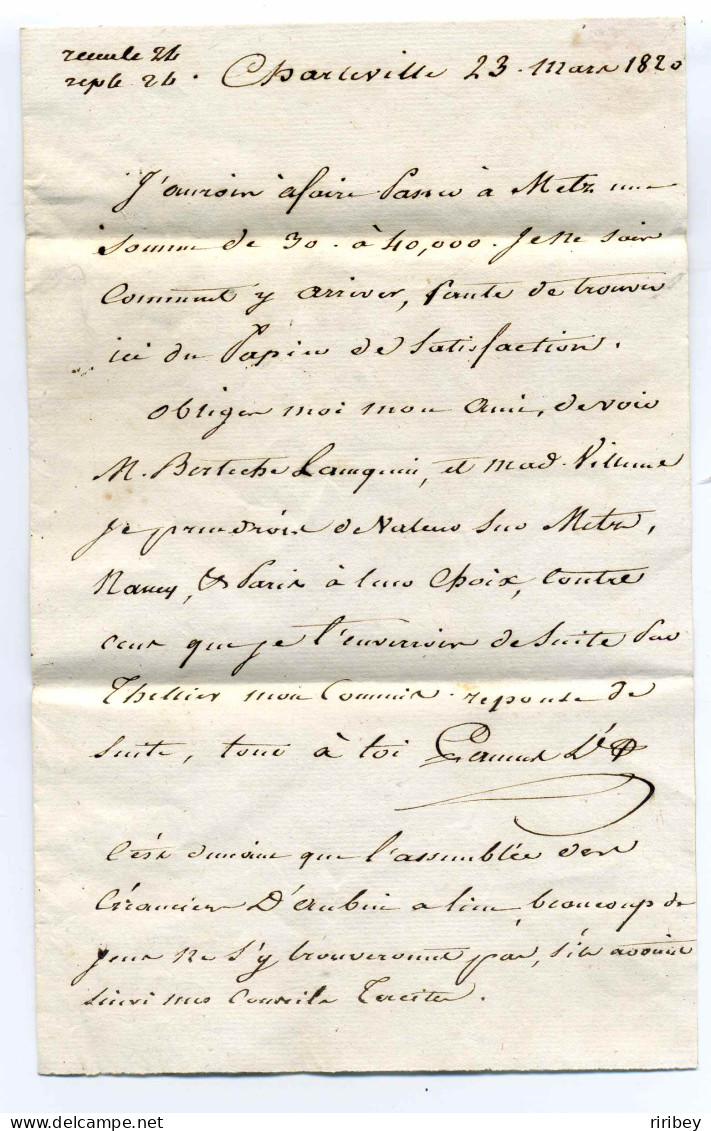 Charleville 23. Mars 1820
J'auroin à faire Passer à Metz une
Somme de 30. à 40,000. Je ne sais
Comment y arriver, faute de trouver
ici du Papier de Satisfaction.
Obliger moi mon Ami, de voir
M. Berteche Lamquin, et Mad. Villeme
Je prendrois de Valeur Sur Metz,
Nancy, & Paris à leur Choix, Contre
ceux que je t'enverroin de Suite Par
Thellier mon Commis. reponse de
Suite, tout à toi
C'est demain que l'assemblée des
Créanciers D'Aubin a lieu, beaucoup de
Jens ne s'y trouveront pas, s'ils avoient
Suivi mes Conseils
ribrey